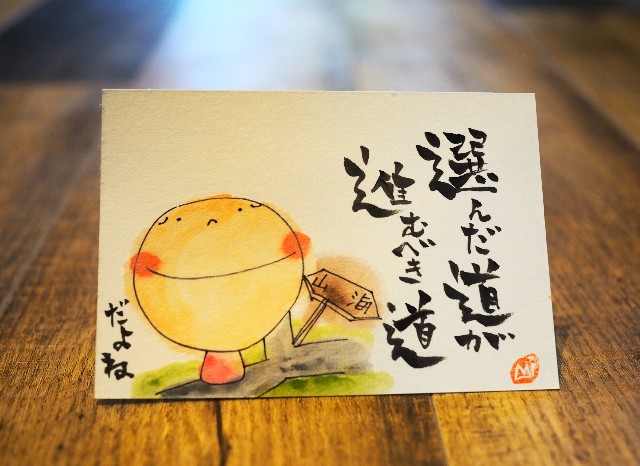 選んだ道が
進むべき道
だよね
山 海
Mi